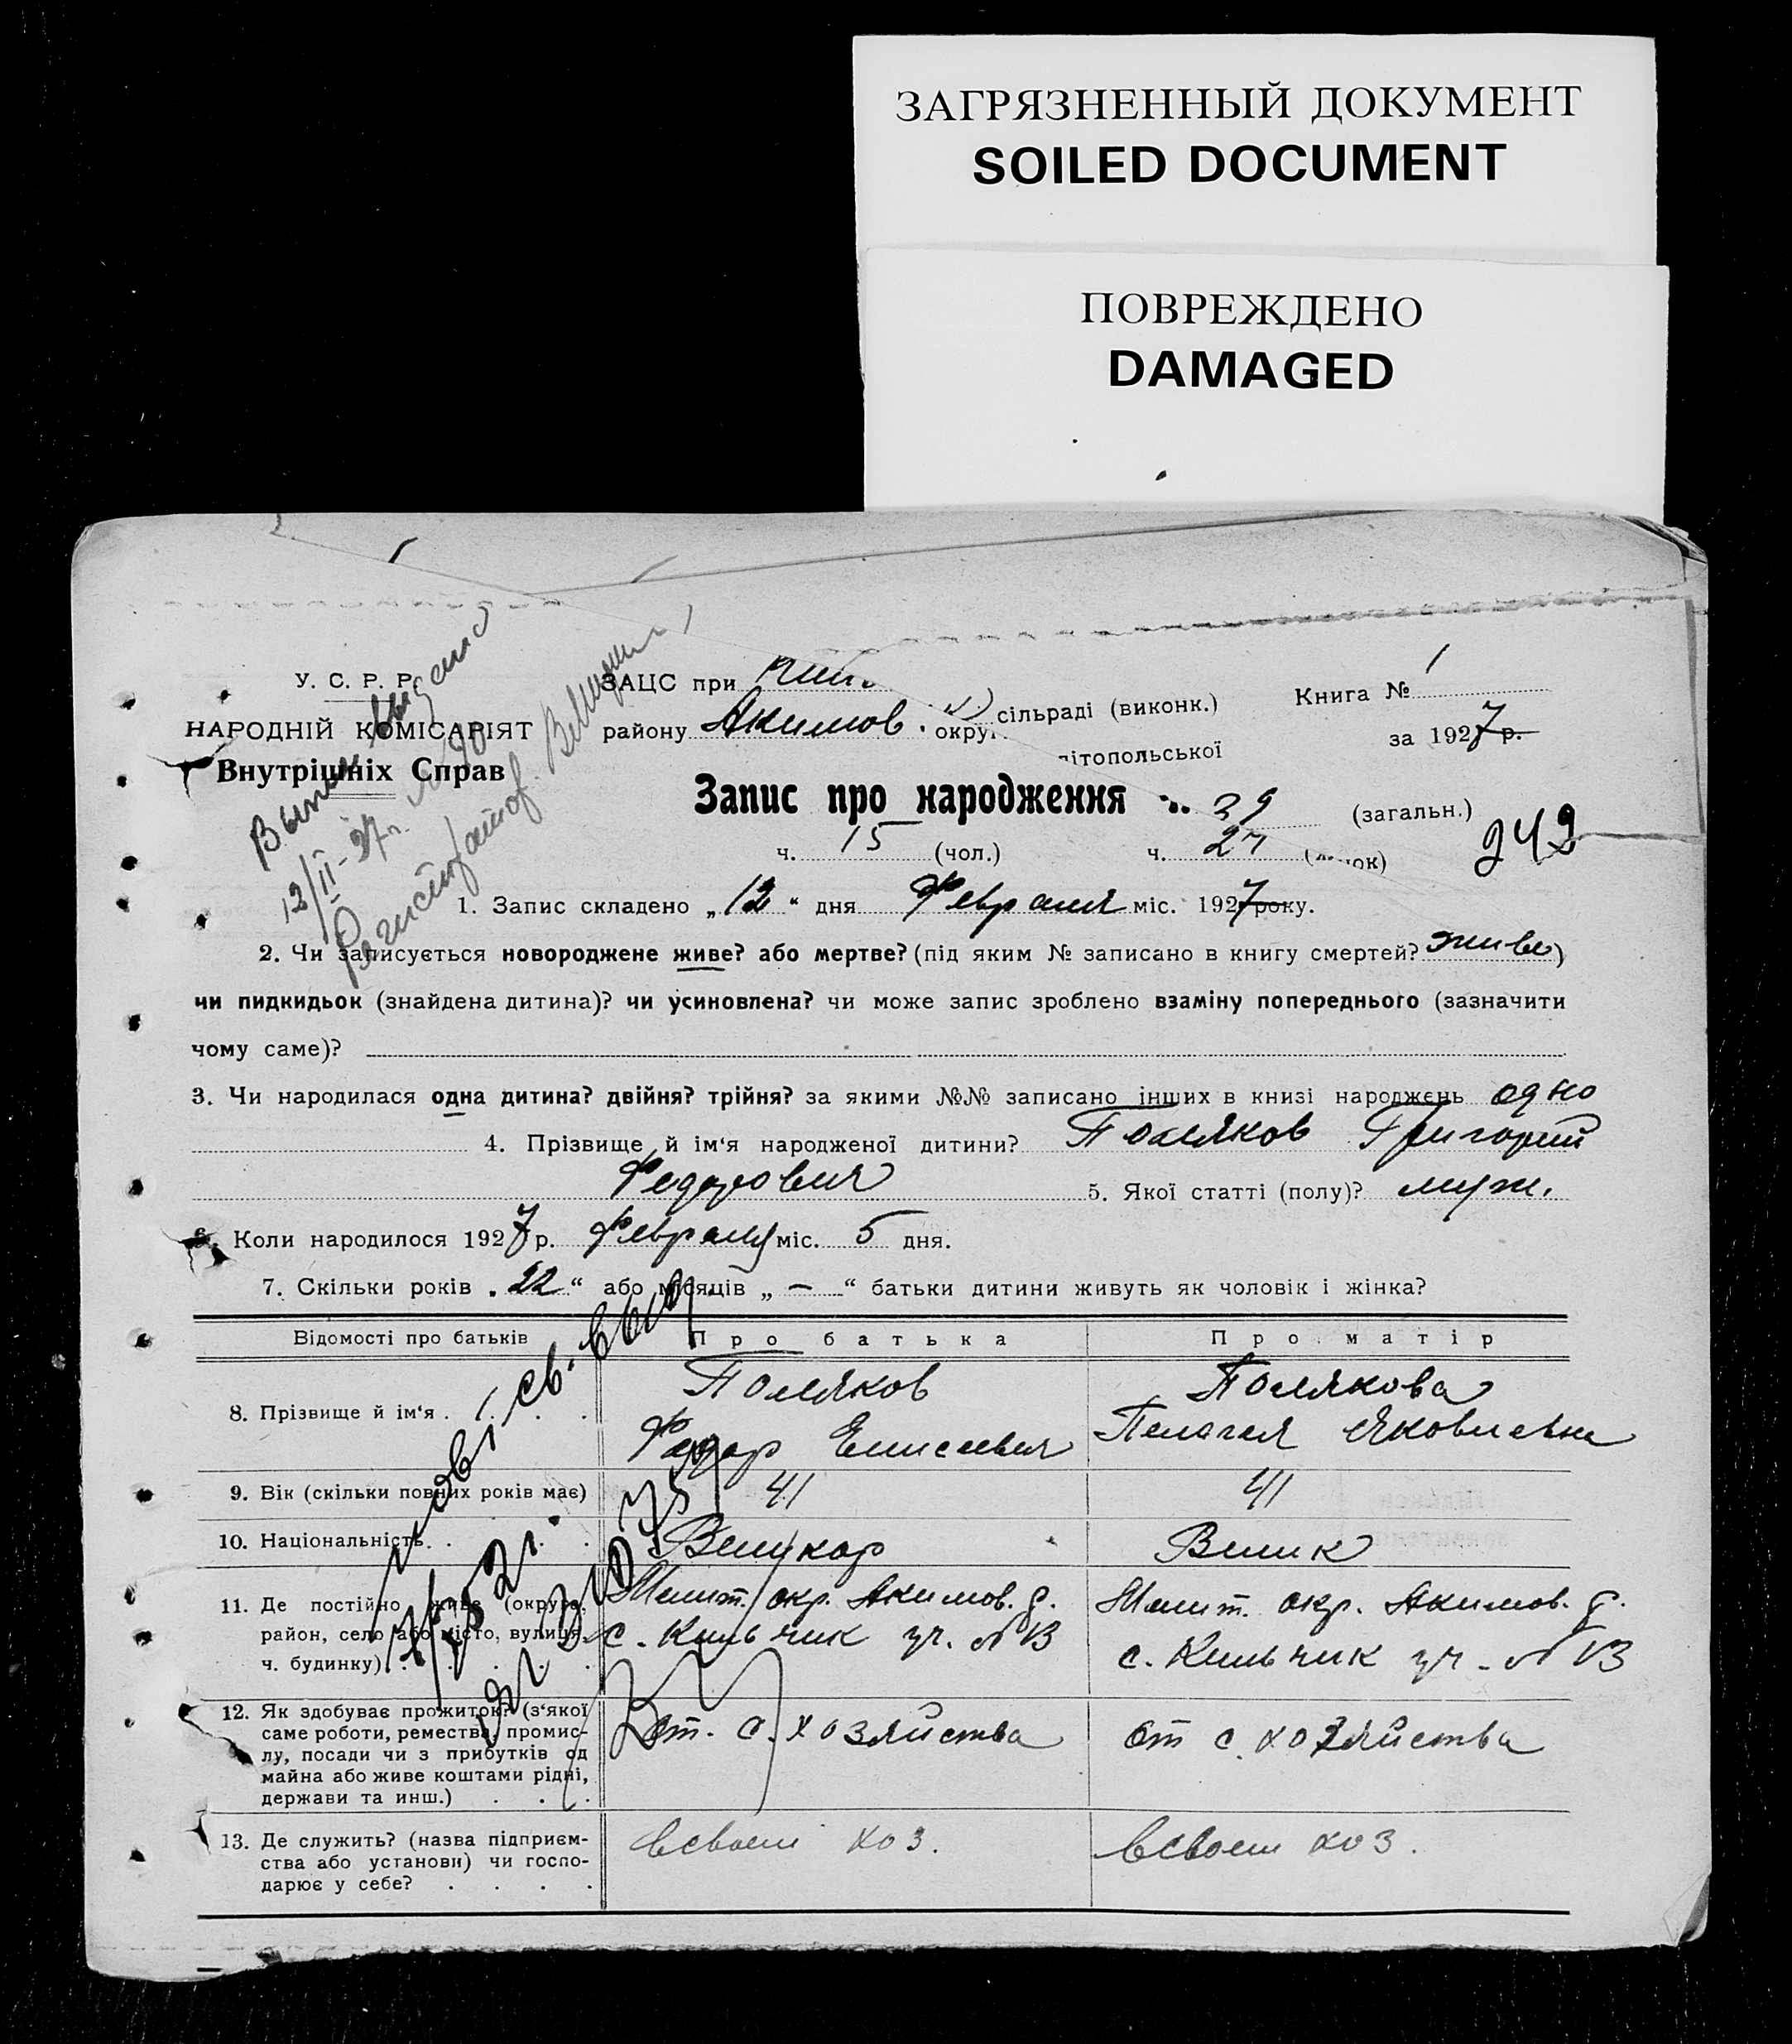 ЗАГРЯЗНЕННЫЙ ДОКУМЕНТ
SOILED DOCUMENT
ПОВРЕЖДЕНО
DAMAGED
У. С. Р. Р.
НАРОДНІЙ КОМІСАРІЯТ
Внутрішніх Справ
ЗАЦС при сільраді (виконк.)
району Акимов. округ
ітопольської
Книга № 1
за 1927 р.
Запис про народження 39 (загальн.)
ч. 15 (чол.) ч. 24 ок)
242
12/II-27 г.
1. Запис складено „12“ дня Февраля міс. 1927 року.
2. Чи записується новороджене живе? або мертве? (під яким № записано в книгу смертей? живе)
чи пидкидьок (знайдена дитина)? чи усиновлена? чи може запис зроблено взаміну попереднього (зазначити
чому саме)?
3. Чи народилася одна дитина? двійня? трійня? за якими №№ записано інших в книзі народжень одно
4. Прізвище й ім‘я народженої дитини? Поляков Григорий
Федорович 5. Якої статті (полу)? муж.
6. Коли народилося 1927 р. Февраля міс. 5 дня.
7. Скільки років „22“ або місяців „—“ батьки дитини живуть як чоловік і жінка?
Відомості про батьків Про батька Про матір
8. Прізвище й ім‘я Поляков Полякова
Федор Елисеевич Пелагея Яковлевна
9. Вік (скільки повних років має) 41 41
10. Національність Великор Велик
11. Де постійно живе (округа, Мелит. окр. Акимов. р. Мелит. окр. Акимов. р.
район, село або місто, вулиця, с. Кильчик уч. № 13 с. Кильчик уч. № 13
ч. будинку)
12. Як здобуває прожиток? (з‘якої
саме роботи, ремества, промис- от. с. хозяйства от с. хозяйства
лу, посади чи з прибутків од
майна або живе коштами рідні,
держави та инш.)
13. Де служить? (назва підприєм- в своем хоз. в своем хоз.
ства або установи) чи госпо-
дарює у себе?